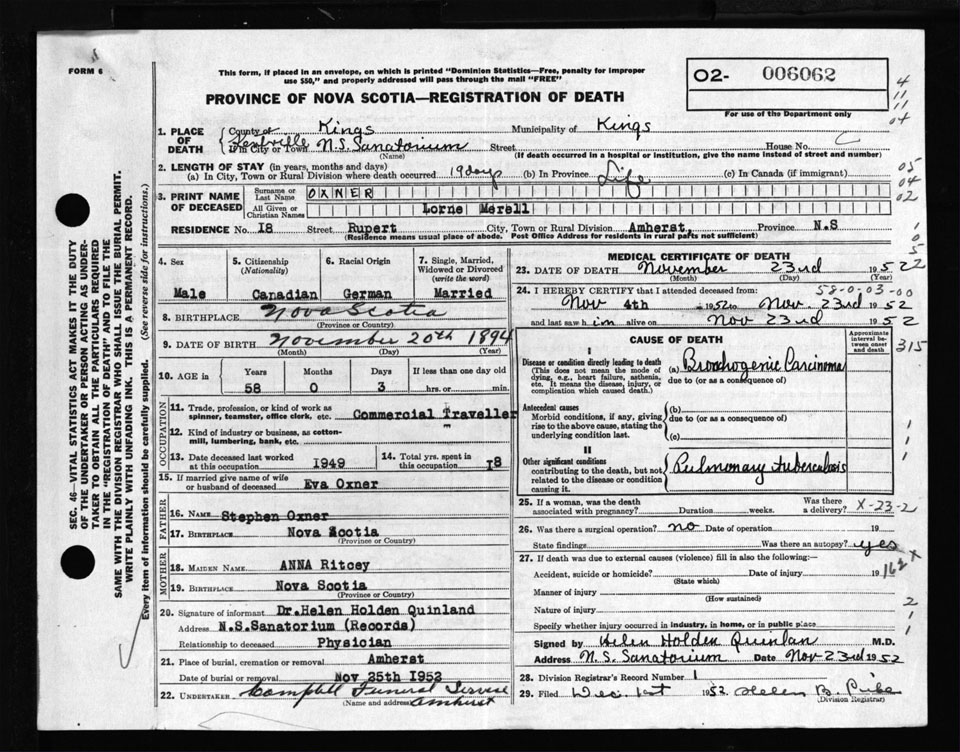 FORM 6
This form, if placed in an envelope, on which is printed "Dominion Statistics—Free, penalty for improper
use $50," and properly addressed will pass through the mail "FREE"
PROVINCE OF NOVA SCOTIA—REGISTRATION OF DEATH
O2- 006062
For use of the Department only
4
11
11
04
1. PLACE OF DEATH
County of Kings Municipality of Kings
If in City or Town Kentville N.S. Sanatorium Street House No.
(Name) (If death occurred in a hospital or institution, give the name instead of street and number)
2. LENGTH OF STAY (in years, months and days)
(a) In City, Town or Rural Division where death occurred 19 days (b) In Province Life (c) In Canada (if immigrant)
05
04
02
3. PRINT NAME OF DECEASED
Surname or Last Name OXNER
All Given or Christian Names Lorne Merell
RESIDENCE No. 18 Street Rupert City, Town or Rural Division Amherst, Province N.S
(Residence means usual place of abode. Post Office Address for residents in rural parts not sufficient)
SEC. 46—VITAL STATISTICS ACT MAKES IT THE DUTY
OF THE UNDERTAKER OR PERSON ACTING AS UNDER-
TAKER TO OBTAIN ALL THE PARTICULARS REQUIRED
IN THE "REGISTRATION OF DEATH" AND TO FILE THE
SAME WITH THE DIVISION REGISTRAR WHO SHALL ISSUE THE BURIAL PERMIT.
WRITE PLAINLY WITH UNFADING INK. THIS IS A PERMANENT RECORD.
Every item of information should be carefully supplied. (See reverse side for instructions.)
4. Sex
Male
5. Citizenship
(Nationality)
Canadian
6. Racial Origin
German
7. Single, Married,
Widowed or Divorced
(write the word)
Married
8. BIRTHPLACE Nova Scotia
(Province or Country)
9. DATE OF BIRTH November 20th 1894
(Month) (Day) (Year)
10. AGE in
Years Months Days If less than one day old
58 0 3 hrs. or min.
OCCUPATION
11. Trade, profession, or kind of work as
spinner, teamster, office clerk, etc. Commercial Traveller
12. Kind of industry or business, as cotton-
mill, lumbering, bank, etc.
13. Date deceased last worked
at this occupation 1949
14. Total yrs. spent in
this occupation 18
15. If married give name of wife
or husband of deceased Eva Oxner
FATHER
16. NAME Stephen Oxner
17. BIRTHPLACE Nova Scotia
(Province or Country)
MOTHER
18. MAIDEN NAME ANNA Ritcey
19. BIRTHPLACE Nova Scotia
(Province or Country)
20. Signature of informant Dr.Helen Holden Quinland
Address N.S.Sanatorium (Records)
Relationship to deceased Physician
21. Place of burial, cremation or removal Amherst
Date of burial or removal Nov 25th 1952
22. UNDERTAKER Campbell Funeral Service
(Name and address) Amherst
MEDICAL CERTIFICATE OF DEATH
23. DATE OF DEATH November 23rd 1952
(Month) (Day) (Year)
58-0-03-00
24. I HEREBY CERTIFY that I attended deceased from:
Nov 4th 1952 to Nov. 23rd 1952
and last saw him alive on Nov 23rd 1952
CAUSE OF DEATH
Approximate
interval be-
tween onset
and death
315
I
Disease or condition directly leading to death
(This does not mean the mode of
dying, e.g., heart failure, asthenia,
etc. It means the disease, injury, or
complication which caused death.)
(a) Bronchogenic Carcinoma
due to (or as a consequence of)
Antecedent causes
Morbid conditions, if any, giving
rise to the above cause, stating the
underlying condition last.
(b)
due to (or as a consequence of)
(c)
II
Other significant conditions
contributing to the death, but not
related to the disease or condition
causing it.
Pulmonary tuberculosis
25. If a woman, was the death
associated with pregnancy? Duration weeks. Was there
a delivery?
X-23-2
26. Was there a surgical operation? no Date of operation 19
State findings Was there an autopsy? yes
27. If death was due to external causes (violence) fill in also the following:—
Accident, suicide or homicide? Date of injury 19
(State which)
162 X
Manner of injury
(How sustained)
Nature of injury
Specify whether injury occurred in industry, in home, or in public place
2
1
1
Signed by Helen Holden Quinlan M.D.
Address N.S. Sanatorium Date Nov 23rd 1952
28. Division Registrar's Record Number 1
29. Filed Dec. 1st 1952 Helen B.
(Division Registrar)